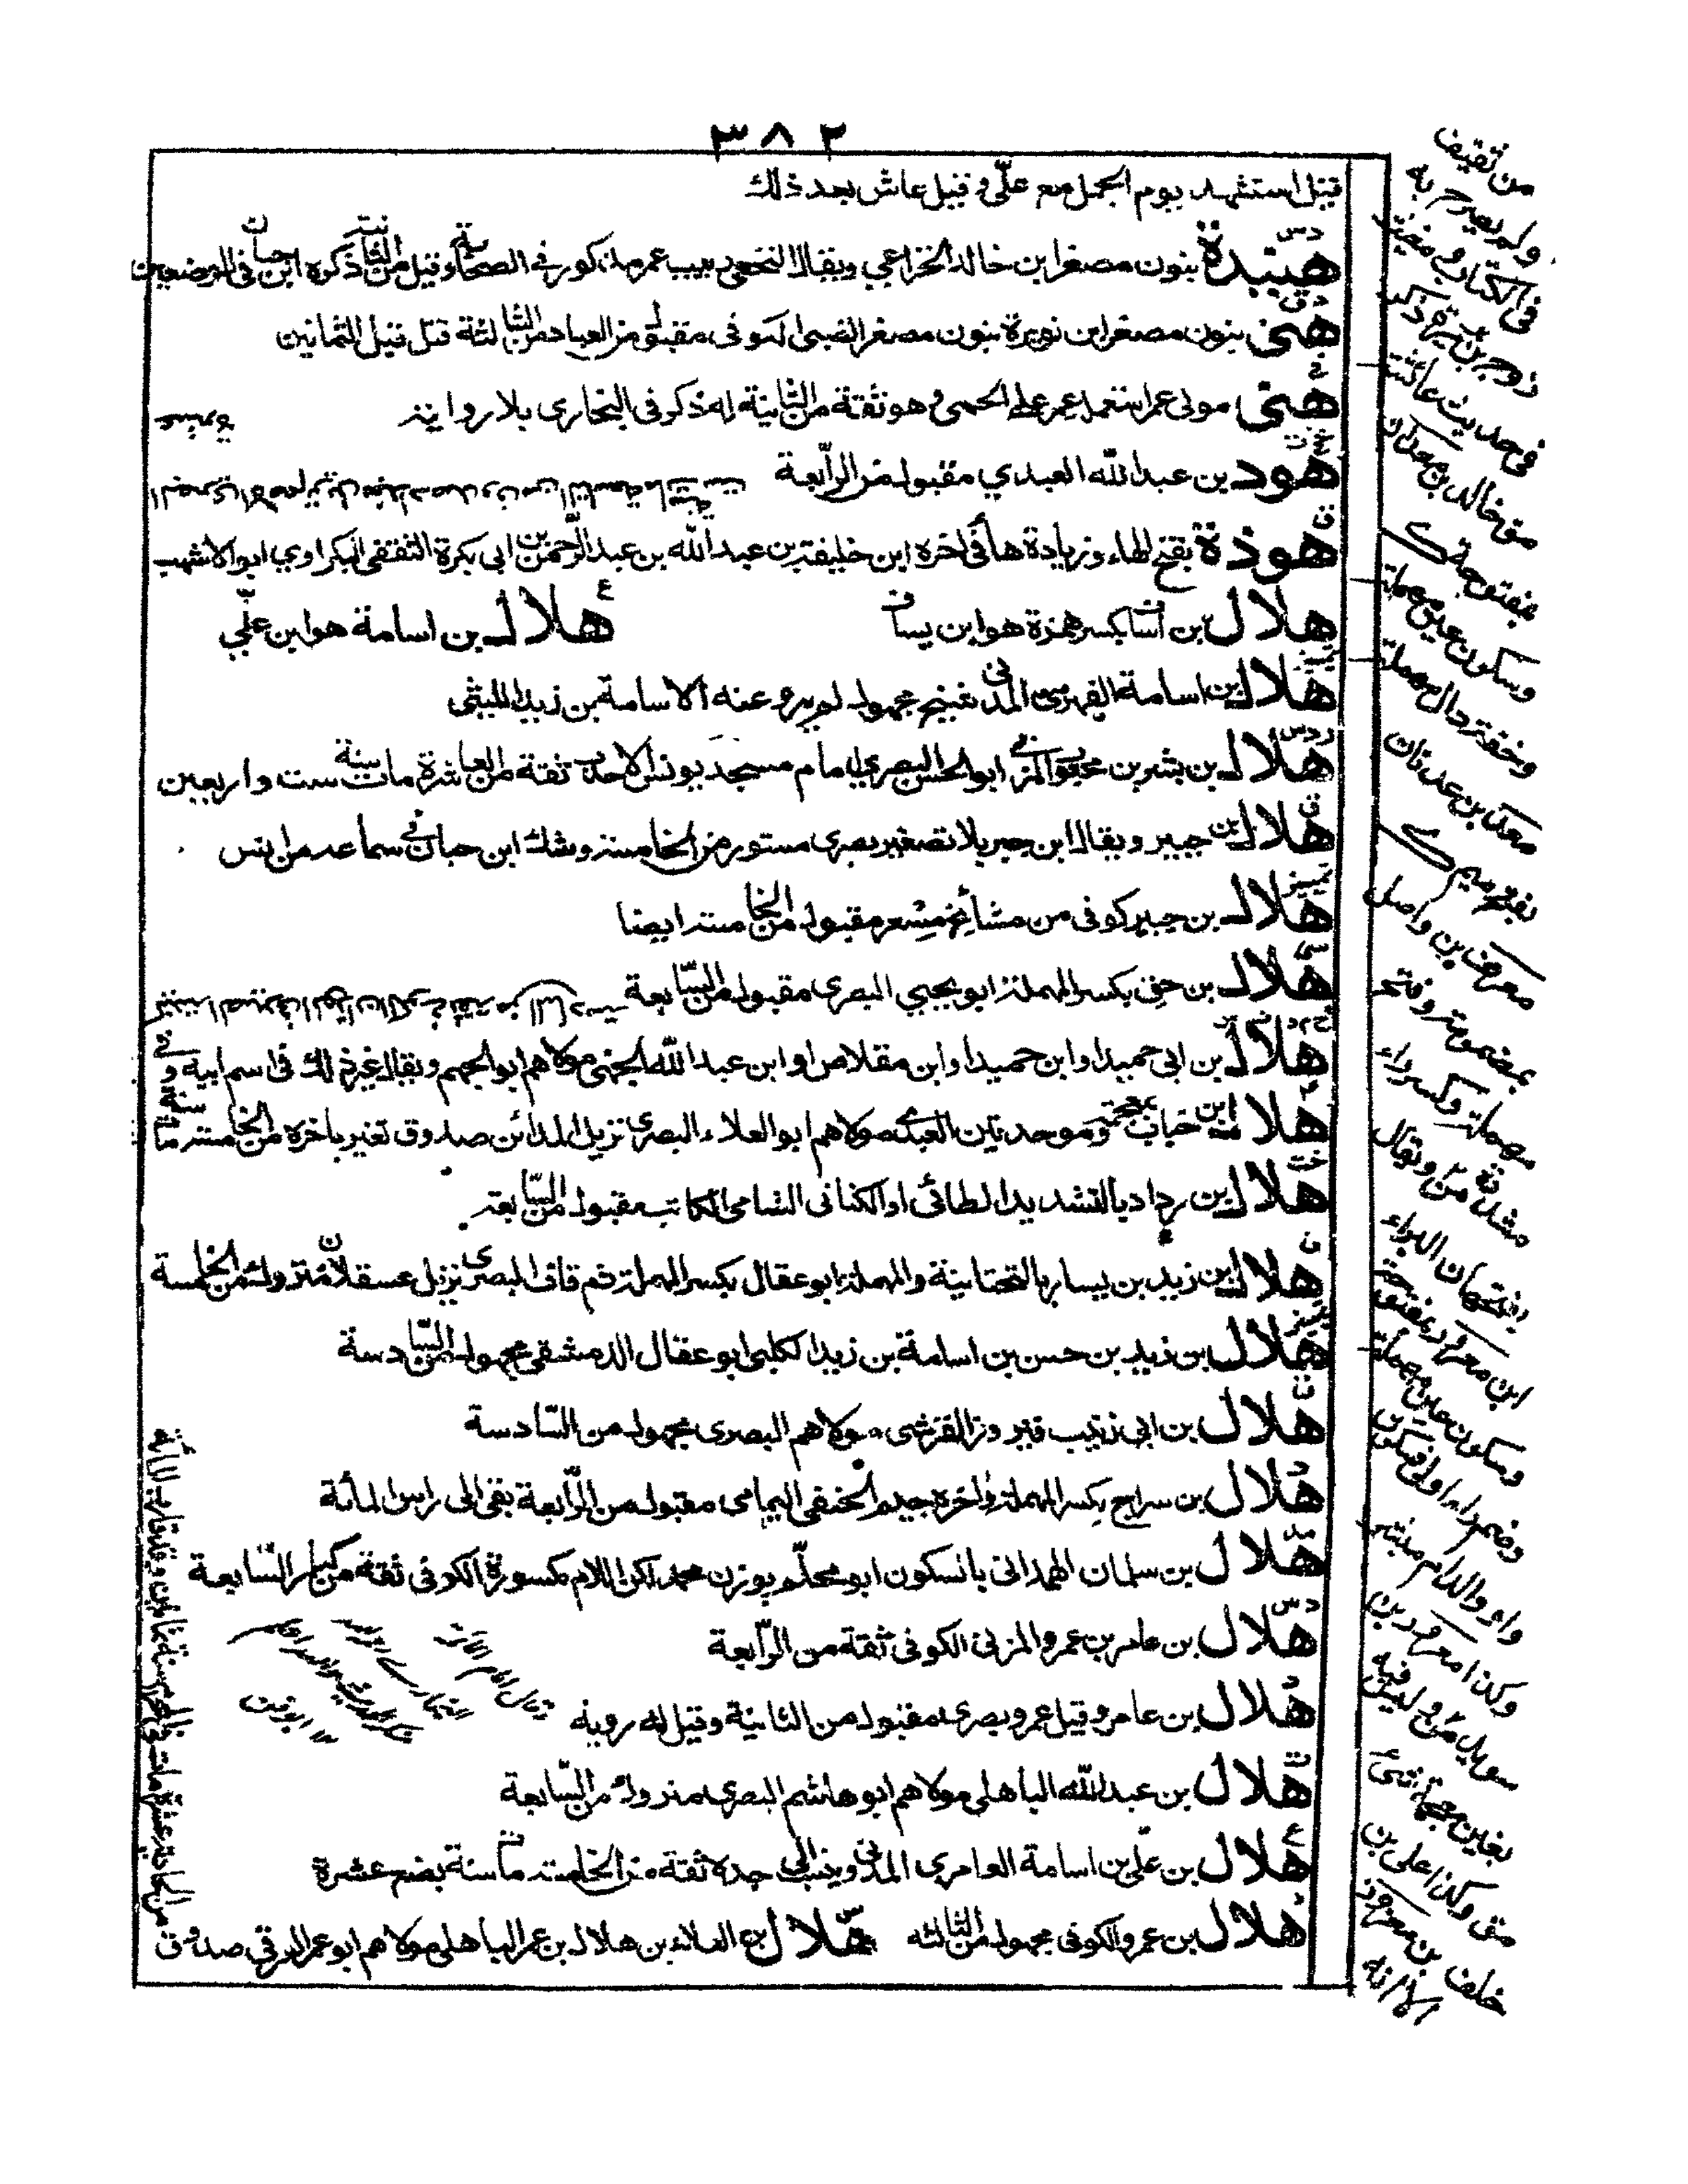 ٣٨٢
قيل استشهد يوم الجمل مع علي و قيل عاش بعد ذلك
هنيدة بنون مصغرا بن خالد الخزاعي ويقال النخعي ربيب عمر مذكور في الصحابة وقيل من الثانية ذكره ابن حبان في الموضعين
هني بنون مصغرا بن نويرة بنون مصغر الضبي الكوفي مقبول من العباد من الثالثة قتل قبل الثمانين
هني مولى عمر استعمله عمر على الحمى وهو ثقة من الثانية له ذكر في البخاري بلا رواية
هود بن عبد الله العبدي مقبول من الرابعة
هوذة بفتح الهاء وزيادة هاء في اخره ابن خليفة بن عبد الله بن عبد الرحمن بن ابي بكرة الثقفي البكراوي ابو الاشهب
هلال بن اساف بكسر همزة هو ابن يساف هلال بن اسامة هو ابن علي
هلال بن اسامة الفهري المدني شيخ مجهول لم يرو عنه الا اسامة بن زيد الليثي
هلال بن بشر بن محبوب المزني ابو الحسن البصري امام مسجد يونس الاحدب ثقة من العاشرة مات سنة ست واربعين
هلال بن جبير ويقال ابن جبر بلا تصغير بصري مستور من الخامسة وشك ابن حبان في سماعه من انس
هلال بن جبير كوفي من مشائخ مسعر مقبول من الخامسة ايضا
هلال بن حق بكسر المهملة ابو يحيى البصري مقبول من السابعة
هلال بن ابي حميد او ابن حميد او ابن مقلاص او ابن عبد الله الجهني مولاهم ابو الجهم ويقال غير ذلك في اسم ابيه وفي
هلال بن خباب بمعجمة وموحدتين العبدي مولاهم ابو العلاء البصري نزيل المدائن صدوق تغير باخره من الخامسة مات سنة
هلال بن رداد بالتشديد الطائي او الكناني الشامي الكاتب مقبول من السابعة
هلال بن زيد بن يسار بالتحتانية والمهملة ابو عقال بكسر المهملة ثم قاف البصري نزيل عسقلان متروك من الخامسة
هلال بن زيد بن حسن بن اسامة بن زيد الكلبي ابو عقال الدمشقي مجهول من السادسة
هلال بن ابي زينب فيروز القرشي مولاهم البصري مجهول من السادسة
هلال بن سراج بكسر المهملة واخره جيم الحنفي اليمامي مقبول من الرابعة بقي الى راس المائة
هلال بن سلمان الهمداني بالسكون ابو محلم بوزن محمد لكن اللام مكسورة الكوفي ثقة من كبار السابعة
هلال بن عامر بن عمرو المزني الكوفي ثقة من الرابعة
هلال بن عامر وقيل عمرو بصري مقبول من الثانية وقيل له روية
هلال بن عبد الله الباهلي مولاهم ابو هاشم البصري متروك من السابعة
هلال بن علي بن اسامة العامري المدني وينسب الى جده ثقة من الخامسة مات سنة بضع عشرة
هلال بن عمرو الكوفي مجهول من الثالثة هلال بن العلاء بن هلال بن عمر الباهلي مولاهم ابو عمر الرقي صدوق
من ثقيف
ولم يصرح به
في الكتاب و مغيث
زوج بريرة ذكر
في حديث عائشة
خالد بن معدان
بمفتوحة
وسكون عين مهملة
وخفة دال مهملة
معد بن عدنان
بفتح ميم
معرف بن واصل
بمضمومة وفتح
مهملة وكسر راء
مشددة ويقال
بفتحها
ابن معرور بمفتوحة
وسكون عين مهملة
وضم راء اولى
وكذا معرور بن
سويد
بغين معجمة
وكذا علي بن